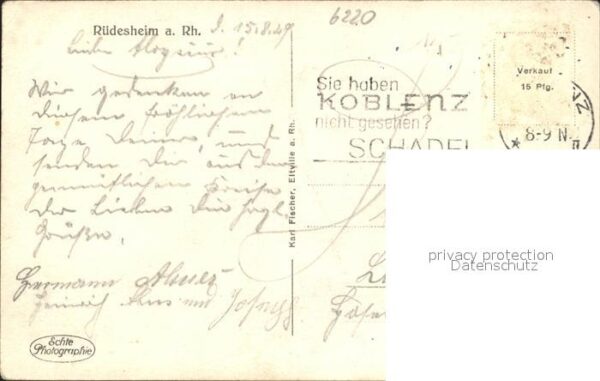 Rüdesheim a. Rh.
d. 15.8.29
6220
Lieber Aloysius!
Wir gedenken an
diesem fröhlichen
Tage Deiner, und
senden Dir aus dem
gemütlichen Kreise
der Lieben die
Grüße.
Hermann
Heinrich und Joseph
Echte
Photographie
Karl Fischer, Eltville a. Rh.
Sie haben
KOBLENZ
nicht gesehen?
SCHADE!
Verkauf
15 Pfg.
8-9 N
privacy protection
Datenschutz